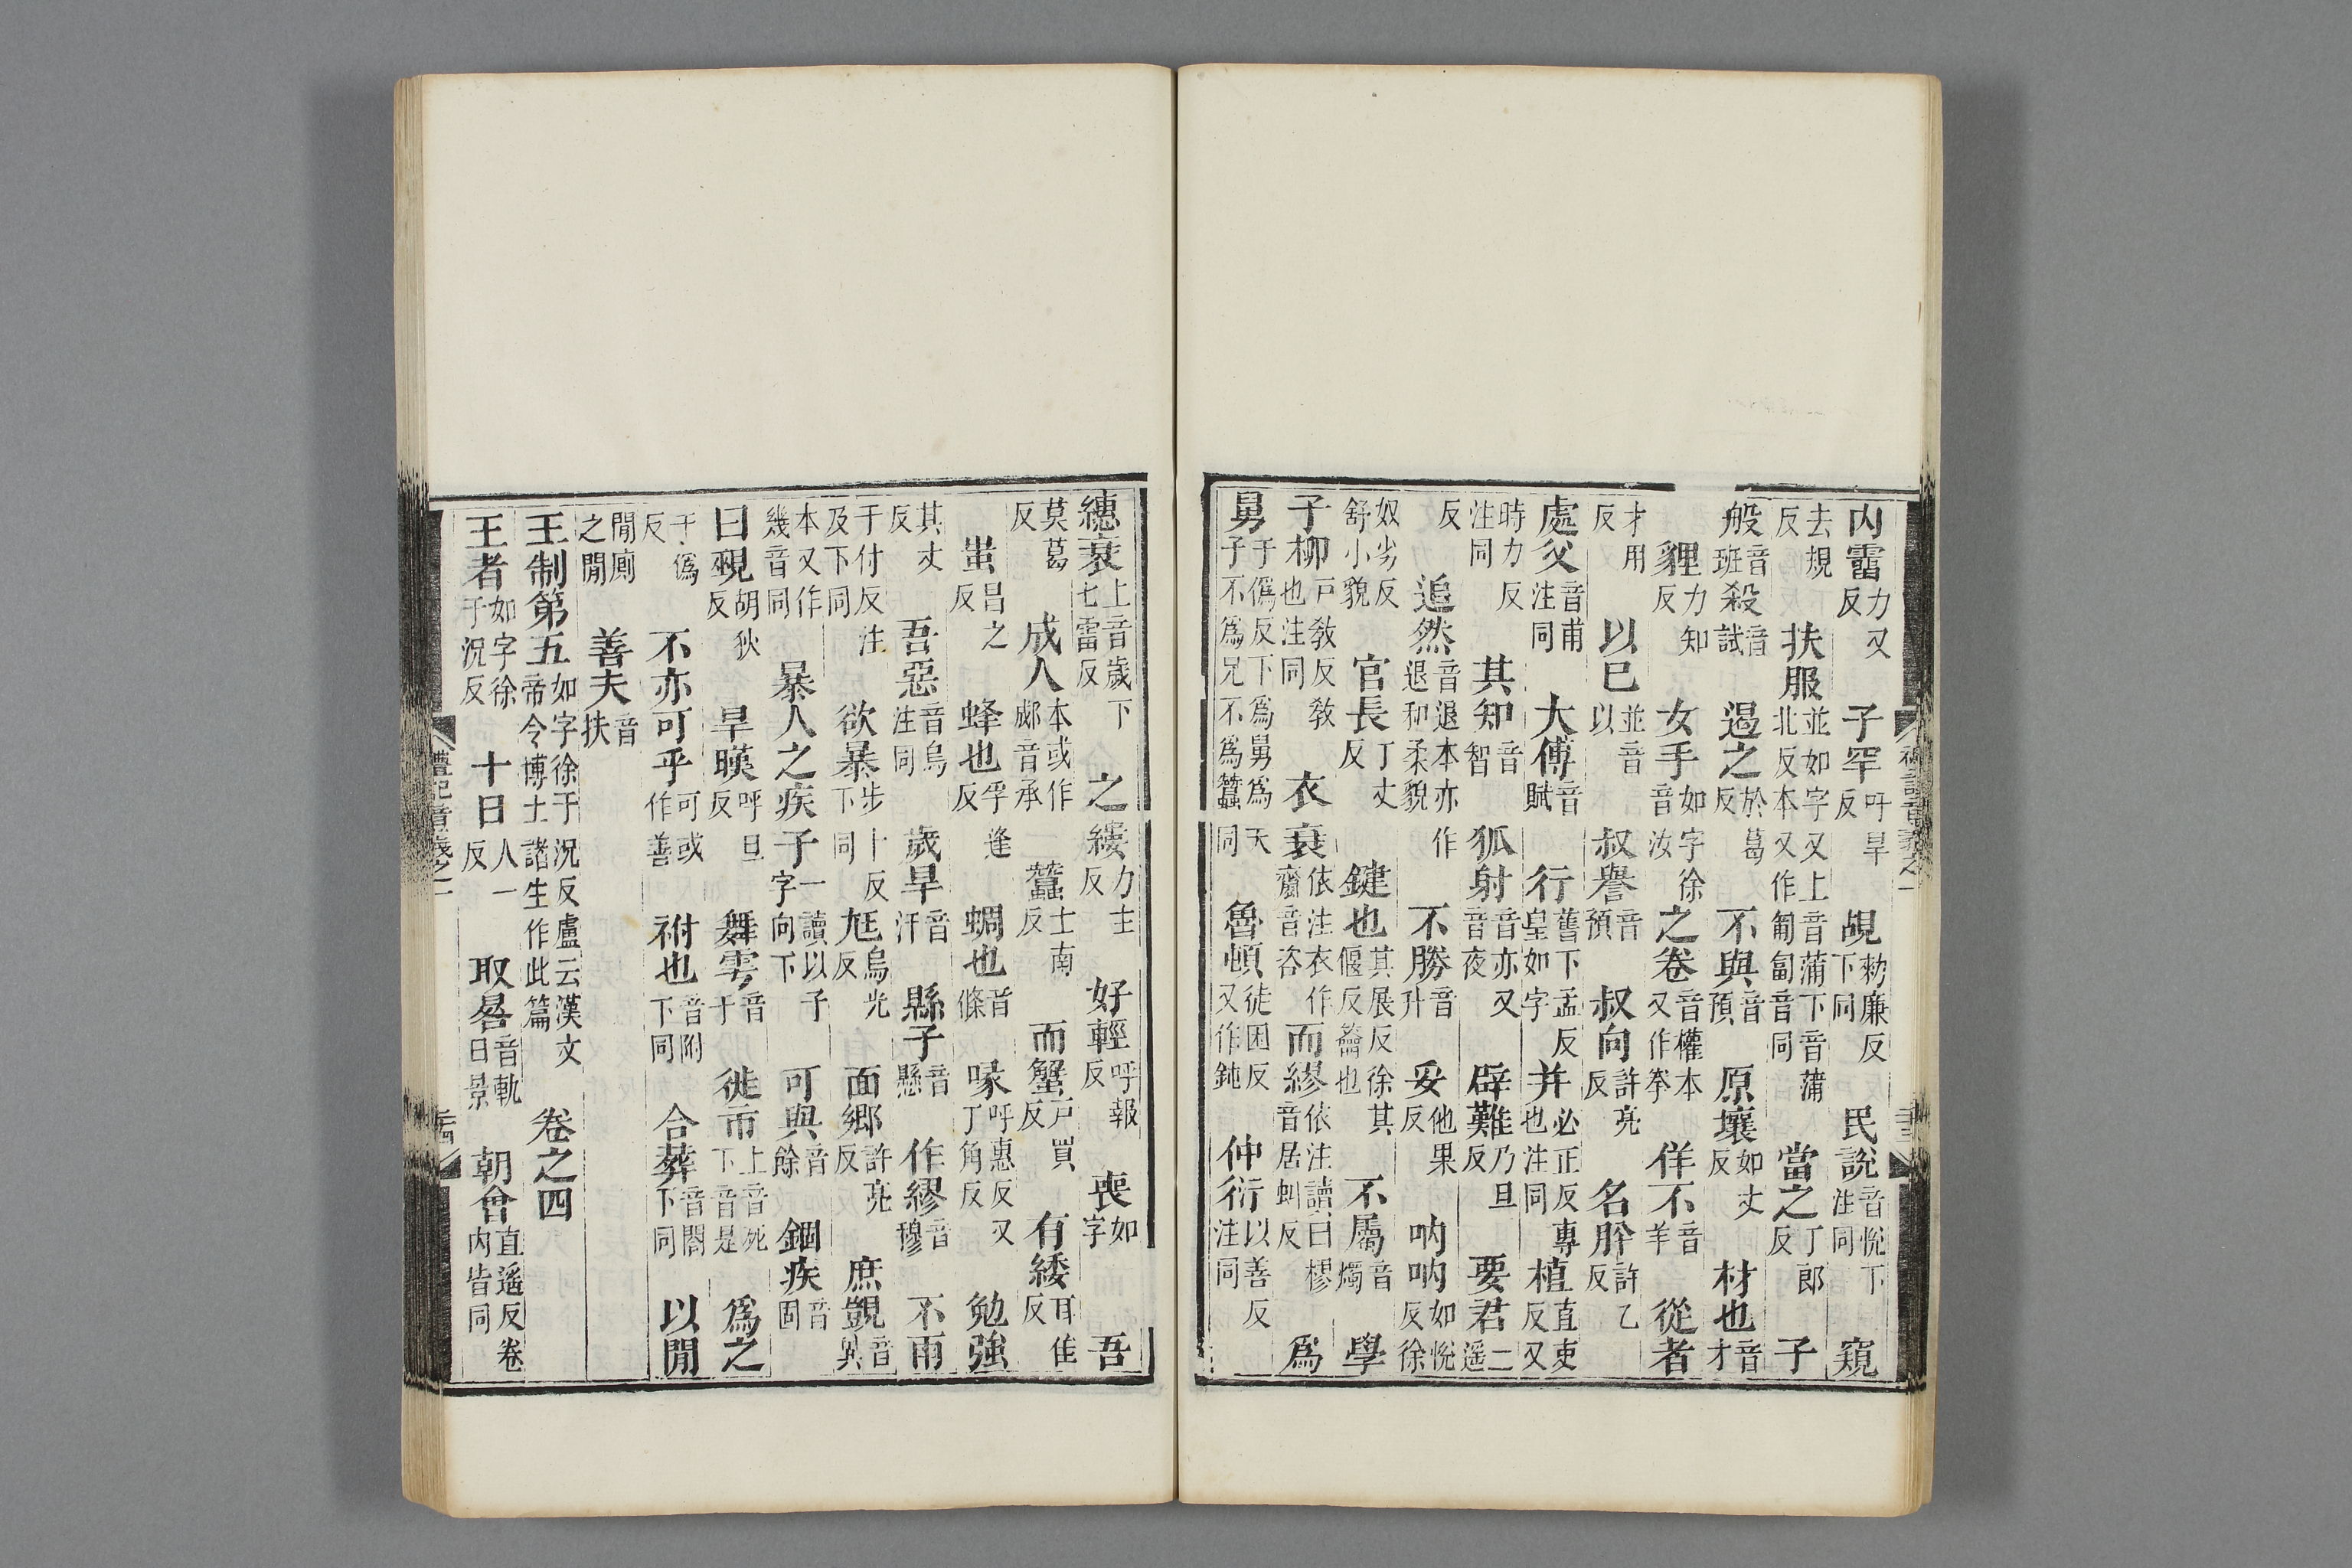 內霤力又反 子罕吁旱反 覘勑廉反下同 民說音悅下注同 窺
去規反 扶服並如字又上音蒲下音蒲北反本又作匍匐音同 當之丁郎反 子
般音班 殺音試 遏之於葛反 不與音預 原壤如丈反 材也音才
貍力知反 女手如字徐音汝 之卷音權本又作拳 佯不音羊 從者
才用反 以巳並音以 叔譽音預 叔向許亮反 名肸許乙反
處父音甫注同 大傅音賦 行舊下孟反皇如字 并必正反專也注同 植直吏反又
時力反注同 其知音智 狐射音亦又音夜 辟難乃旦反 要君一遥
反 追然音退本亦作退和柔貌 不勝音升 妥他果反 吶吶如悅反徐
奴劣反舒小貌 官長丁丈反 鍵也其展反徐其偃反籥也 不屬音燭 學
子柳戶敎反敎也注同 衣衰依注衣作齋音咨 而繆依注讀曰樛音居虯反 爲
舅于僞反下爲舅爲天子不爲兄不爲蠶同 魯頓徒困反又作鈍 仲衍以善反注同
繐衰上音歲下七雷反 之縷力主反 好輕呼報反 喪如字 吾
莫葛反 成人本或作郕音承 蠶士南反 而蟹戶買反 有緌耳隹反
蚩昌之反 蜂也孚逢反 蜩也音條 喙呼惠反又丁角反 勉強
其丈反 吾惡音烏注同 歲旱音汗 縣子音懸 作繆音穆 不雨
于付反注及下同 欲暴步卜反下同 尪烏光反 面鄉許亮反 庶覬音兾
本又作幾音同 暴人之疾子一讀以子字向下 可與音餘 錮疾音固
曰覡胡狄反 旱暵呼旦反 舞雩音于 徙市上音死下音是 爲之
于僞反 不亦可乎可或作善 祔也音附下同 合葬音閤下同 以閒
閒廁之閒 善夫音扶
王制第五如字徐于況反盧云漢文帝令博士諸生作此篇 卷之四
王者如字徐于況反 十日人一反 取晷音軌日景 朝會直遥反卷內皆同